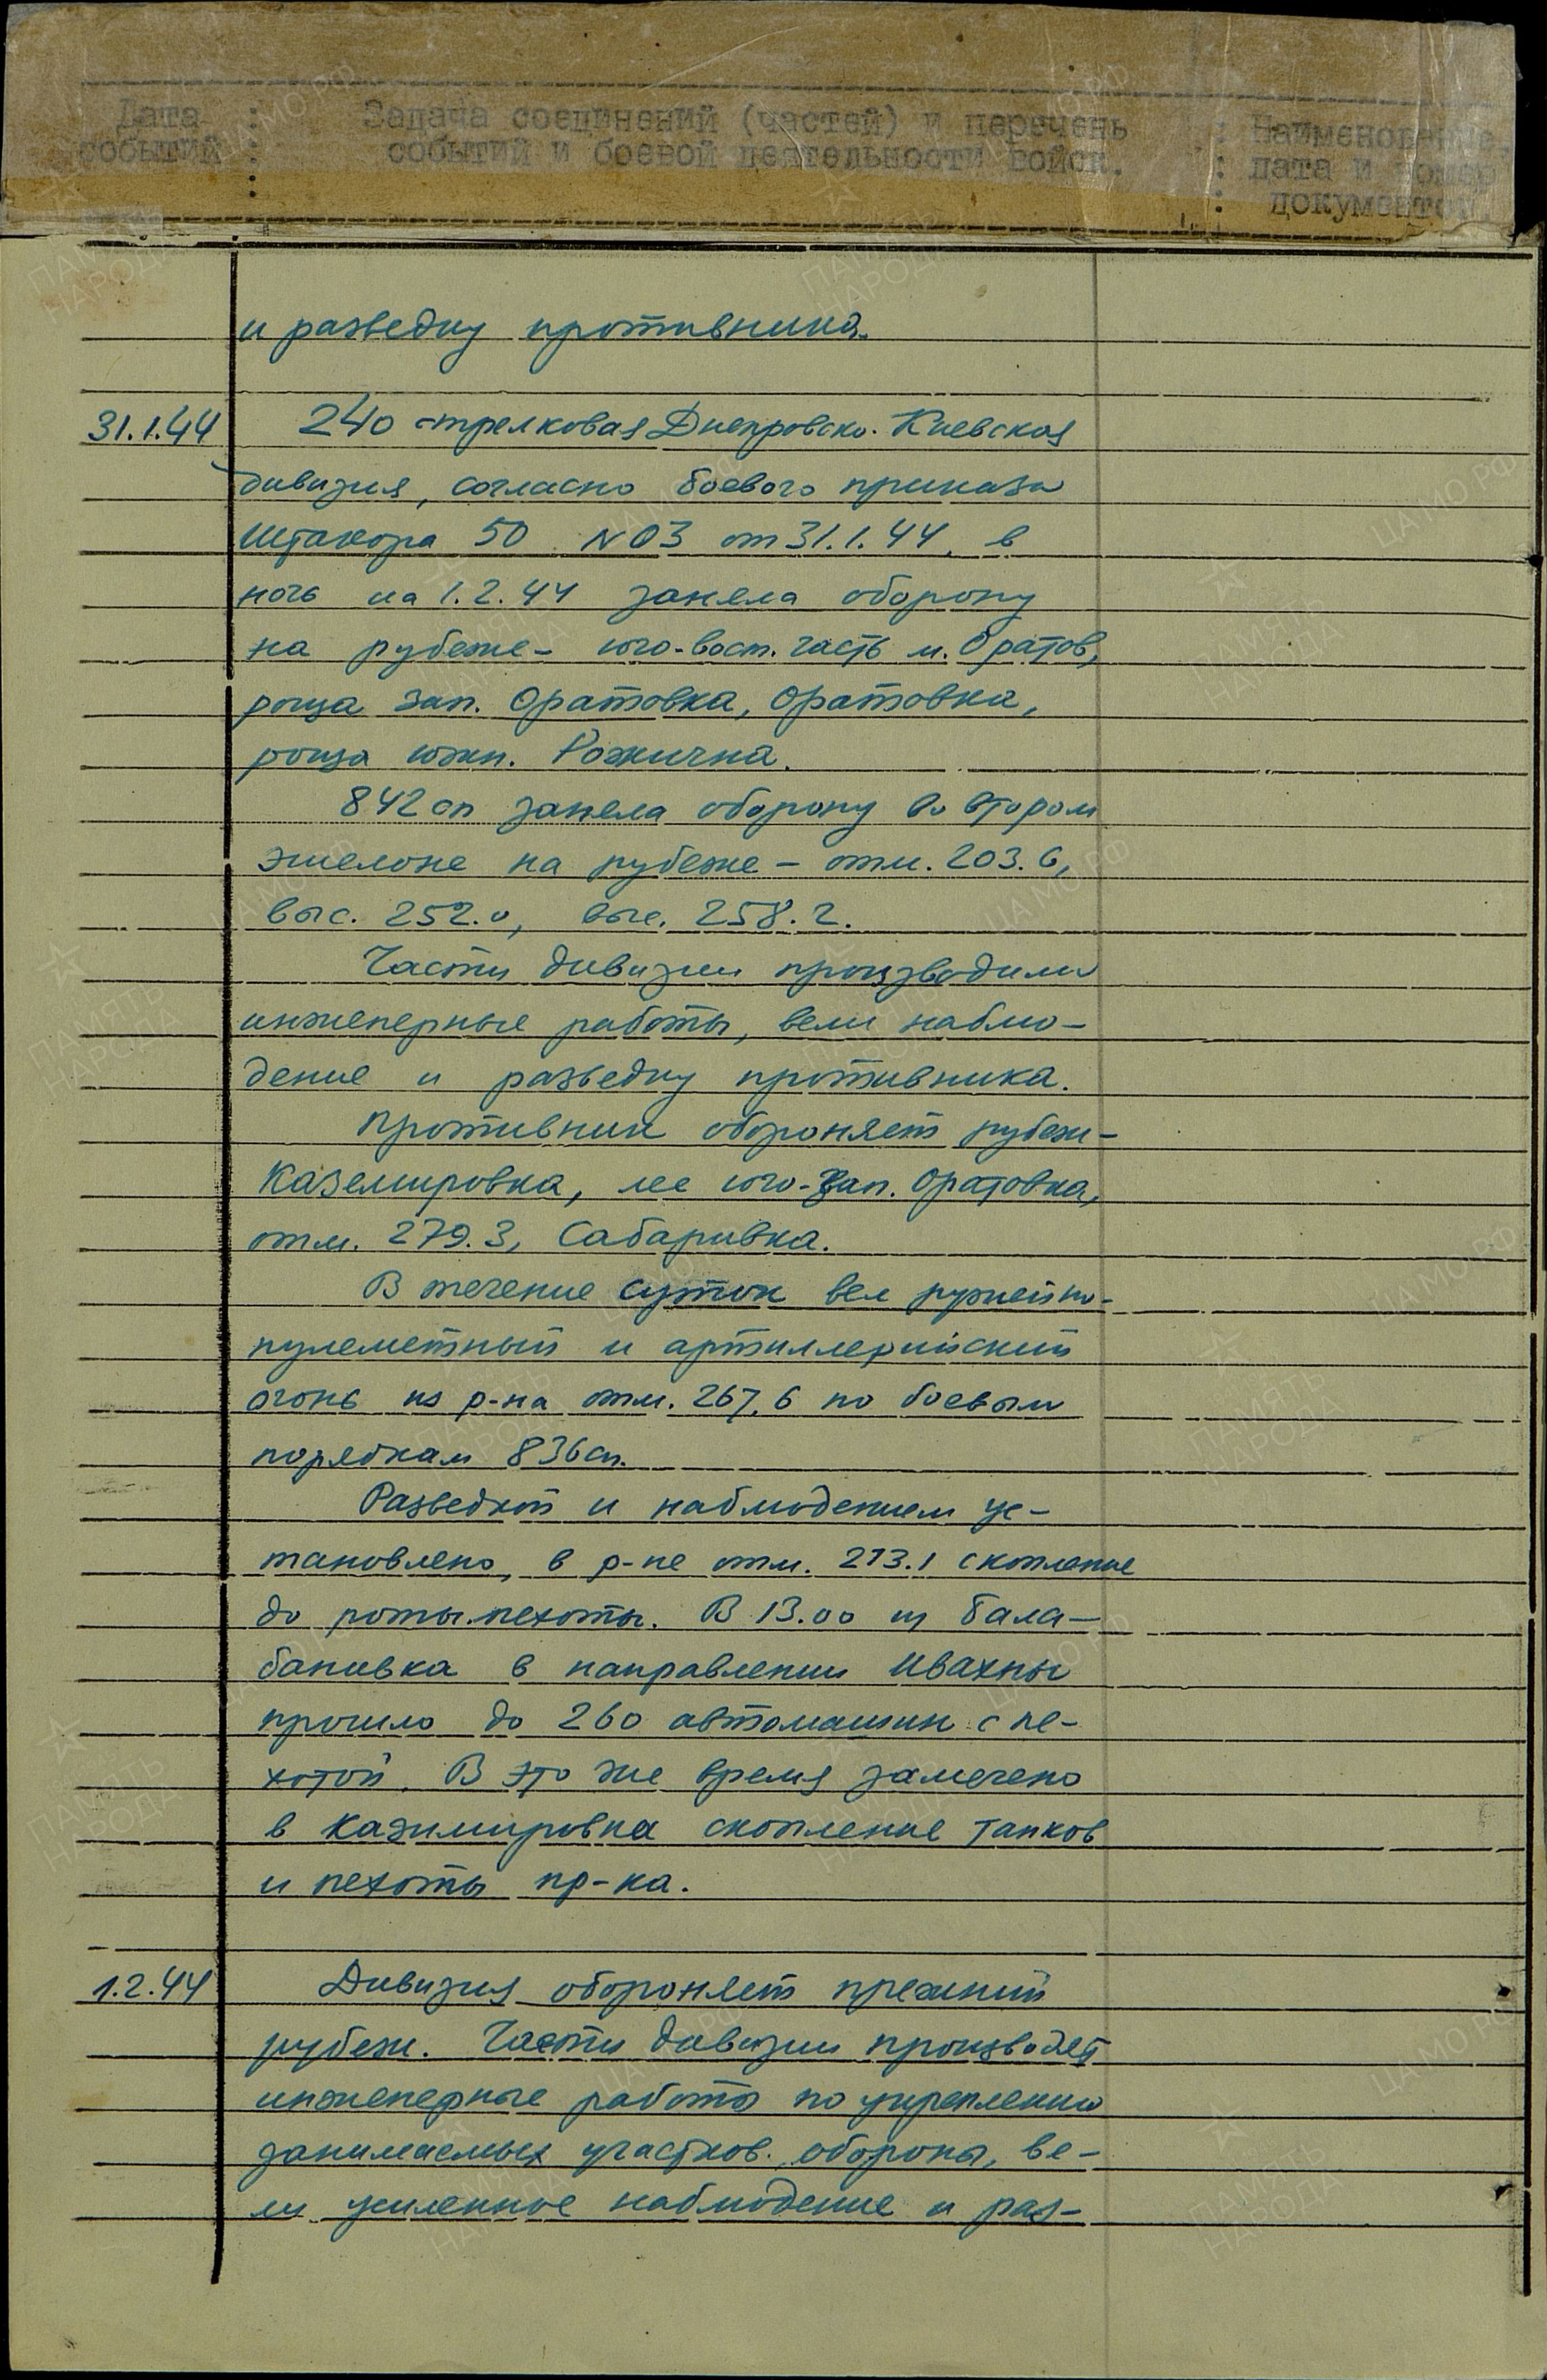 Дата : Задача соединений (частей) и перечень : Наименование,
событий : событий и боевой деятельности войск. : дата и номер
: : документов.
и разведку противника.
31.1.44 240 стрелковая Днепровско-Киевская
дивизия, согласно боевого приказа
Штакора 50 №03 от 31.1.44, в
ночь на 1.2.44 заняла оборону
на рубеже - юго-вост. часть м. Оратов,
роща зап. Оратовка, Оратовка,
роща южн. Рожична.
842 сп заняла оборону во втором
эшелоне на рубеже - отм. 203.6,
выс. 252.0, выс. 258.2.
Части дивизии производили
инженерные работы, вели наблю-
дение и разведку противника.
Противник обороняет рубеж-
Каземировка, лес юго-зап. Оратовка,
отм. 279.3, Сабаривка.
В течение суток вел ружейно-
пулеметный и артиллерийский
огонь из р-на отм. 267,6 по боевым
порядкам 836 сп.
Разведкой и наблюдением ус-
тановлено, в р-не отм. 273.1 скопление
до роты пехоты. В 13.00 из Бала-
бановка в направлении Ивахны
прошло до 260 автомашин с пе-
хотой. В это же время замечено
в Казимировка скопление танков
и пехоты пр-ка.
1.2.44 Дивизия обороняет прежний
рубеж. Части дивизии производят
инженерные работы по укреплению
занимаемых участков обороны, ве-
ли усиленное наблюдение и раз-